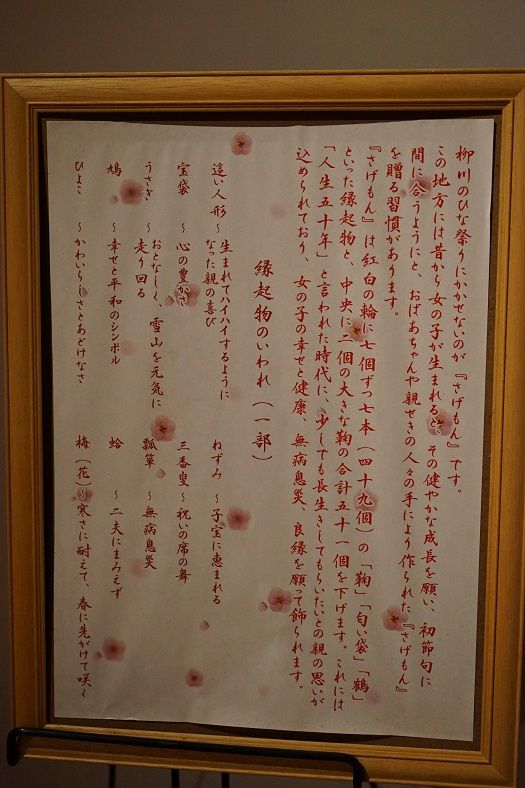 柳川のひな祭りにかかせないのが『さげもん』です。
この地方には昔から女の子が生まれると、その健やかな成長を願い、初節句に
間に合うようにと、おばあちゃんや親せきの人々の手により作られた『さげもん』
を贈る習慣があります。
『さげもん』は紅白の輪に七個ずつ七本（四十九個）の「鞠」「匂い袋」「鶴」
といった縁起物と、中央に二個の大きな鞠の合計五十一個を下げます。これには
「人生五十年」と言われた時代に、少しでも長生きしてもらいたいとの親の思いが
込められており、女の子の幸せと健康、無病息災、良縁を願って飾られます。
縁起物のいわれ（一部）
這い人形～生まれてハイハイするように
なった親の喜び
宝袋　～心の豊かさ
うさぎ　～おとなしく、雪山を元気に
走り回る
鳩　～幸せと平和のシンボル
ひよこ　～かわいらしさとあどけなさ
ねずみ　～子宝に恵まれる
三番叟～祝いの席の舞
瓢箪　～無病息災
蛤　～二夫にまみえず
梅（花）～寒さに耐えて、春に先がけて咲く